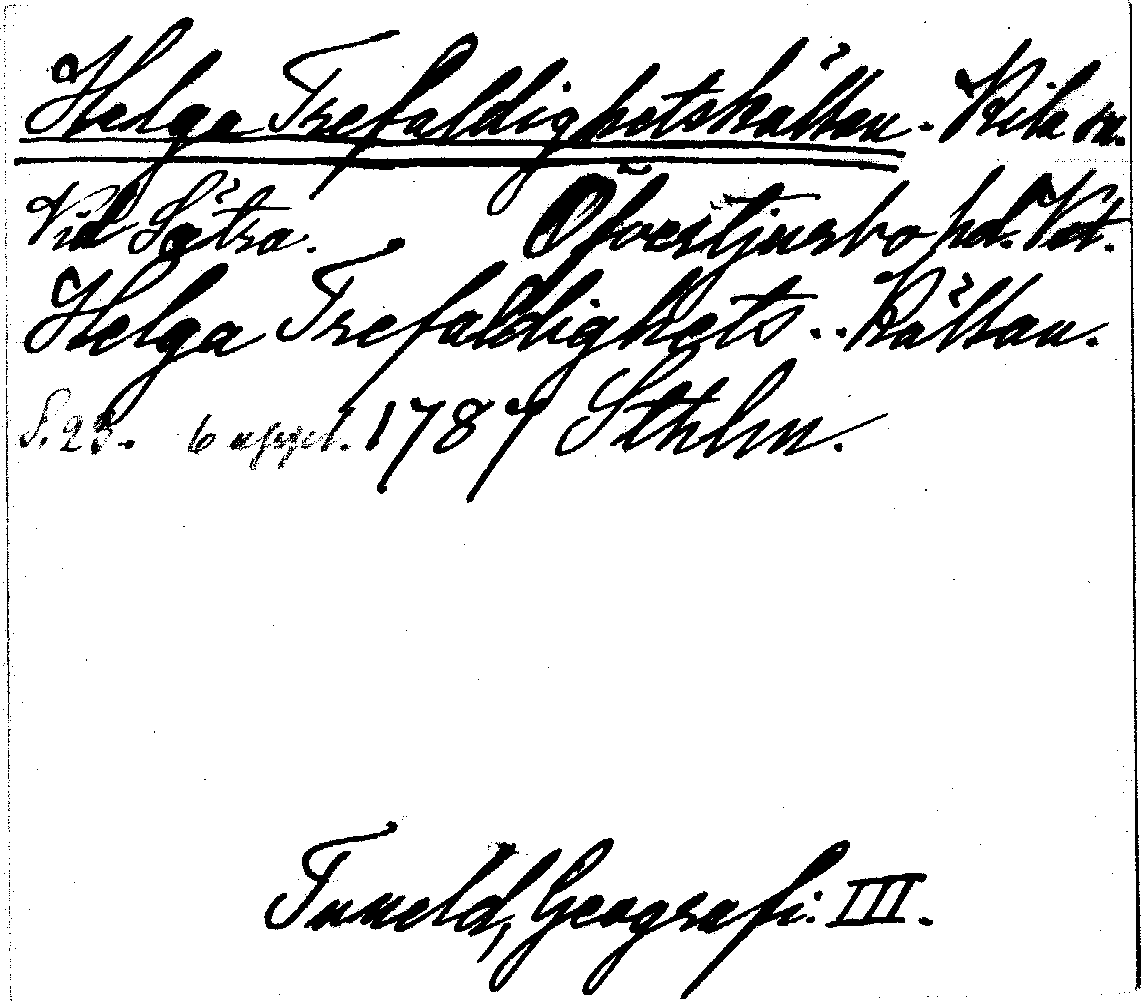 Helga Trefaldighetskällan. Kila sn.
Vid Sätra. Öfvertjurbo hd. Vst.
Helga Trefaldighets..Källan.
S. 23. 6 uppl. 1787 Sthlm.
Tuneld, Geografi. III.